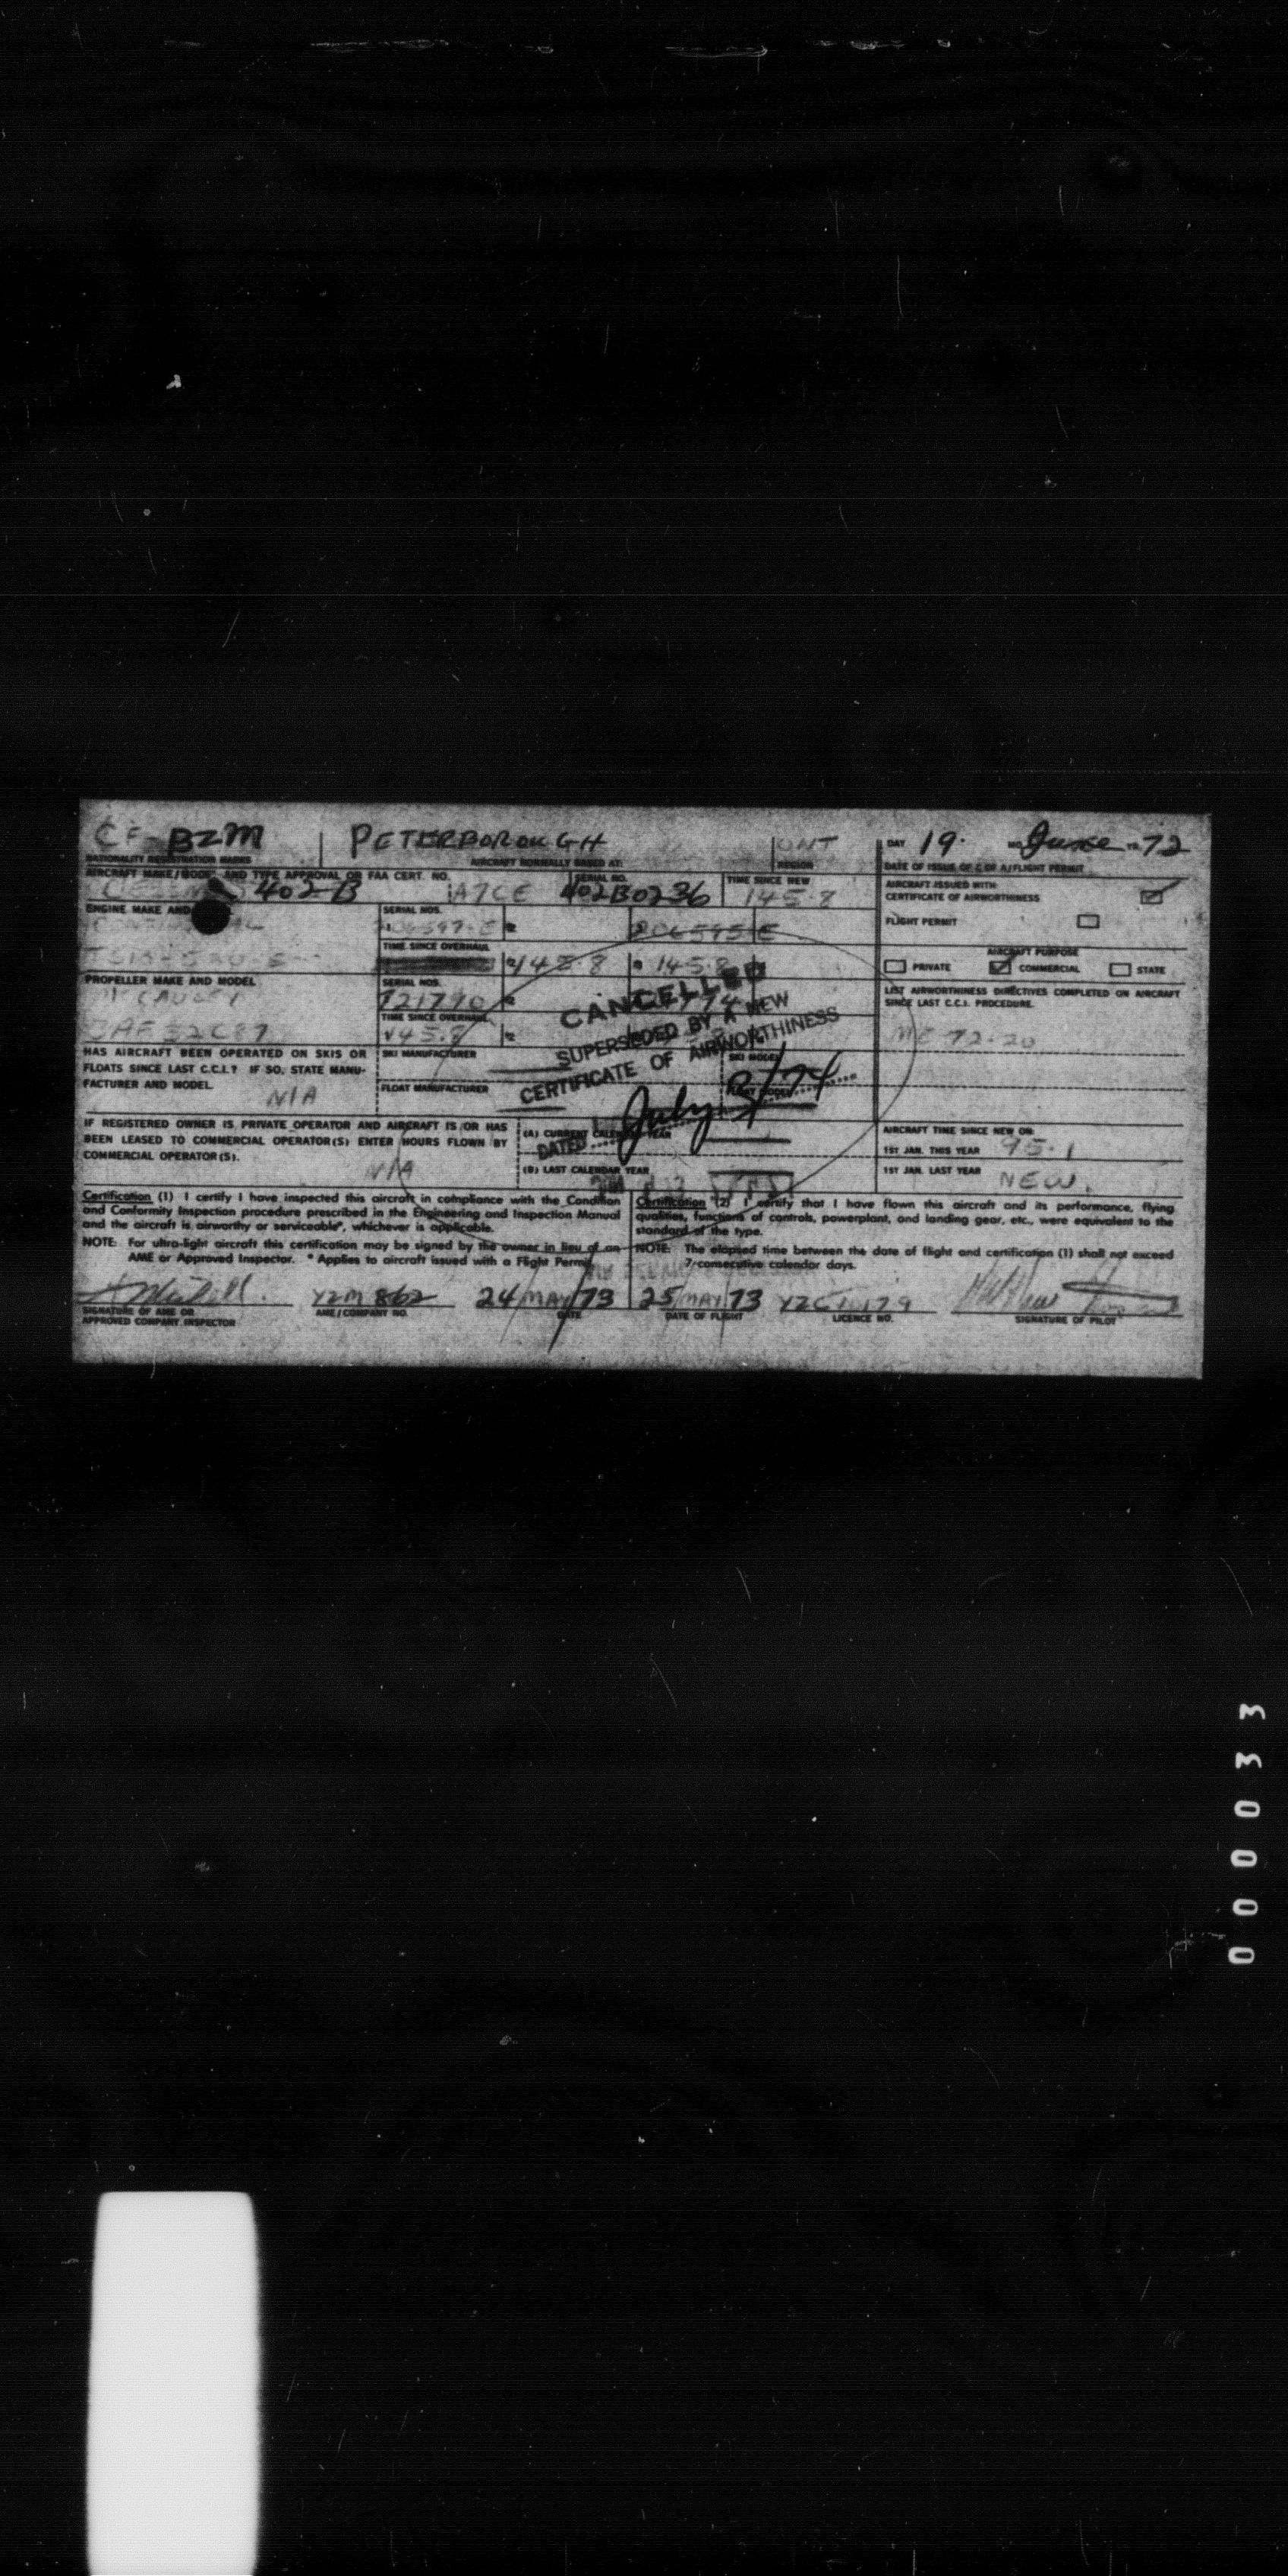 CF-BZM PETERBOROUGH ONT DAY 19. MO. June YR. 72
NATIONALITY REGISTRATION MARKS AIRCRAFT NORMALLY BASED AT: REGION DATE OF ISSUE OF C OF A/FLIGHT PERMIT
AIRCRAFT MAKE/MODEL AND TYPE APPROVAL OR FAA CERT. NO. SERIAL NO. TIME SINCE NEW
402-B A7CE 402B0236 145.8
AIRCRAFT ISSUED WITH:
CERTIFICATE OF AIRWORTHINESS
FLIGHT PERMIT
AIRCRAFT PURPOSE
PRIVATE COMMERCIAL STATE
LIST AIRWORTHINESS DIRECTIVES COMPLETED ON AIRCRAFT
SINCE LAST C.C.I. PROCEDURE.
72-20
ENGINE MAKE AND
SERIAL NOS.
TIME SINCE OVERHAUL
145.8 145.8
PROPELLER MAKE AND MODEL SERIAL NOS.
McCAULEY 721770
TIME SINCE OVERHAUL
145.8
CANCELLED
SUPERSEDED BY A NEW
CERTIFICATE OF AIRWORTHINESS
DATED July 5/74
HAS AIRCRAFT BEEN OPERATED ON SKIS OR
FLOATS SINCE LAST C.C.I.? IF SO, STATE MANU-
FACTURER AND MODEL.
N/A
SKI MANUFACTURER SKI MODEL
FLOAT MANUFACTURER FLOAT MODEL
IF REGISTERED OWNER IS PRIVATE OPERATOR AND AIRCRAFT IS/OR HAS
BEEN LEASED TO COMMERCIAL OPERATOR(S) ENTER HOURS FLOWN BY
COMMERCIAL OPERATOR(S).
N/A
(A) CURRENT CALENDAR YEAR
(B) LAST CALENDAR YEAR
AIRCRAFT TIME SINCE NEW ON:
1ST JAN. THIS YEAR 95.1
1ST JAN. LAST YEAR NEW.
Certification (1) I certify I have inspected this aircraft in compliance with the Condition
and Conformity Inspection procedure prescribed in the Engineering and Inspection Manual
and the aircraft is airworthy or serviceable*, whichever is applicable.
NOTE: For ultra-light aircraft this certification may be signed by the owner in lieu of an
AME or Approved Inspector. * Applies to aircraft issued with a Flight Permit.
Certification (2) I certify that I have flown this aircraft and its performance, flying
qualities, functions of controls, powerplant, and landing gear, etc., were equivalent to the
standard of the type.
NOTE: The elapsed time between the date of flight and certification (1) shall not exceed
7 consecutive calendar days.
YZM 862 24/MAY/73 25/MAY/73
SIGNATURE OF AME OR AME/COMPANY NO. DATE DATE OF FLIGHT LICENCE NO. SIGNATURE OF PILOT
APPROVED COMPANY INSPECTOR
000033